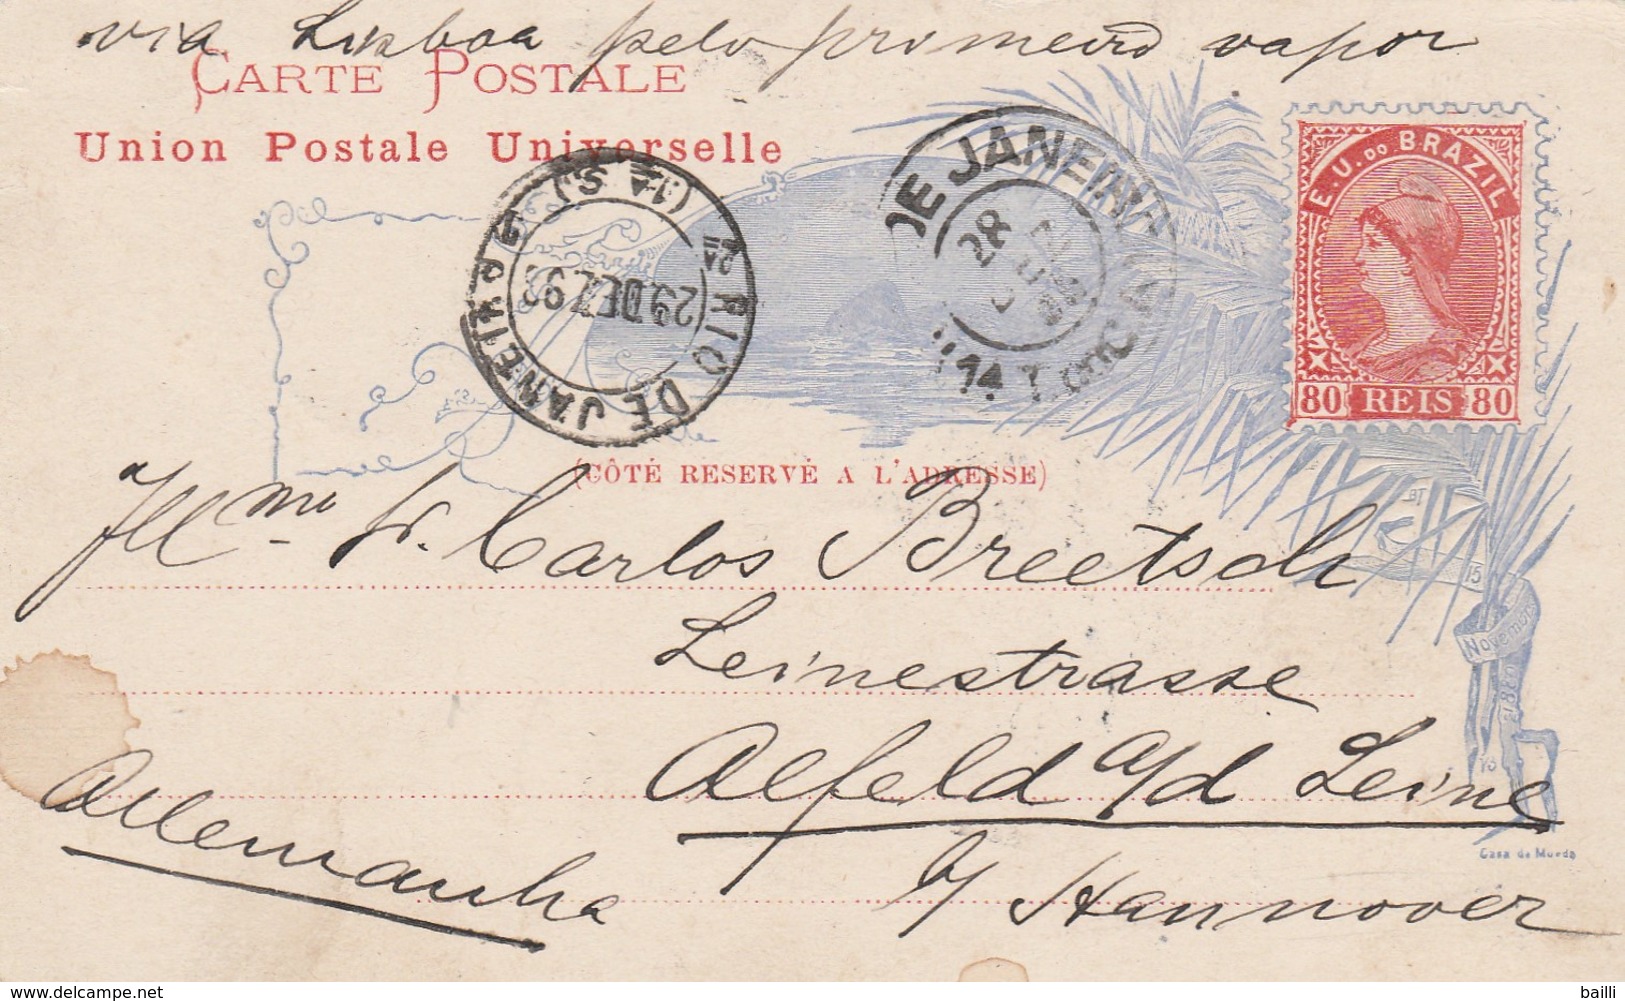 via Lisboa pelo primeiro vapor
CARTE POSTALE
Union Postale Universelle
E.U. DO BRAZIL
80 REIS 80
DE JANEIRO
(1A S.)
2a
29.DEZ.9
RIO DE JANEIRO
(CÔTÉ RESERVÉ A L'ADRESSE)
Illmo. Sr. Carlos Breetsch
Leinestrasse
Alfeld a/d Leine
b/ Hannover
Allemanha
15
Novembro
1889
Casa da Moeda
delcampe.net
bailli